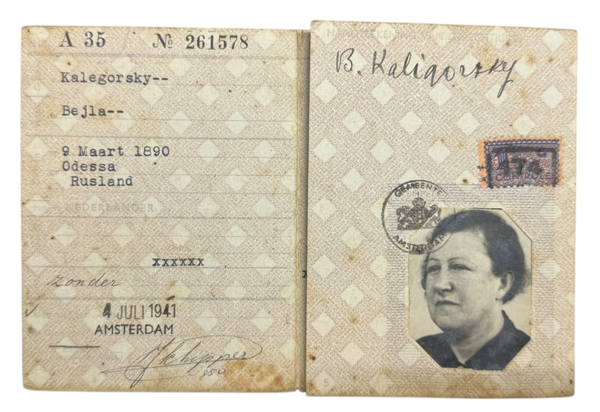 A 35 № 261578
Kalegorsky--
Bejla--
9 Maart 1890
Odessa
Rusland
NEDERLANDER
xxxxxx
zonder
4 JULI 1941
AMSTERDAM
B. Kaligorsky
174
GEMEENTE
AMSTERDAM
5